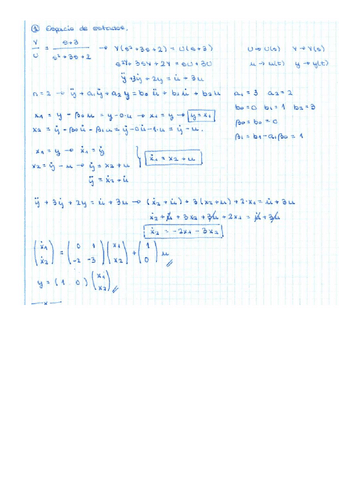 ① Espacio de estados.
Y/U = s+3 / s²+3s+2 → Y(s²+3s+2) = U(s+3) U→U(s) Y→Y(s)
s²Y+3sY+2Y = sU+3U u→u(t) y→y(t)
ÿ+3ẏ+2y = u̇+3u
n=2 → ÿ+a₁ẏ+a₂y = b₀ü+b₁u̇+b₂u a₁=3 a₂=2
b₀=0 b₁=1 b₂=3
x₁ = y-β₀u = y-0·u → x₁=y → y=x₁ β₀=b₀=0
x₂ = ẏ-β₀u̇-β₁u = ẏ-0u̇-1·u = ẏ-u. β₁=b₁-a₁β₀=1
x₁=y → ẋ₁=ẏ
x₂=ẏ-u → ẏ=x₂+u ẋ₁=x₂+u
ÿ=ẋ₂+u̇
ÿ+3ẏ+2y=u̇+3u → (ẋ₂+u̇)+3(x₂+u)+2·x₁=u̇+3u
ẋ₂+u̇+3x₂+3u+2x₁=u̇+3u
ẋ₂=-2x₁-3x₂
(ẋ₁ ẋ₂) = (0 1 -2 -3)(x₁ x₂)+(1 0)u
y=(1 0)(x₁ x₂)